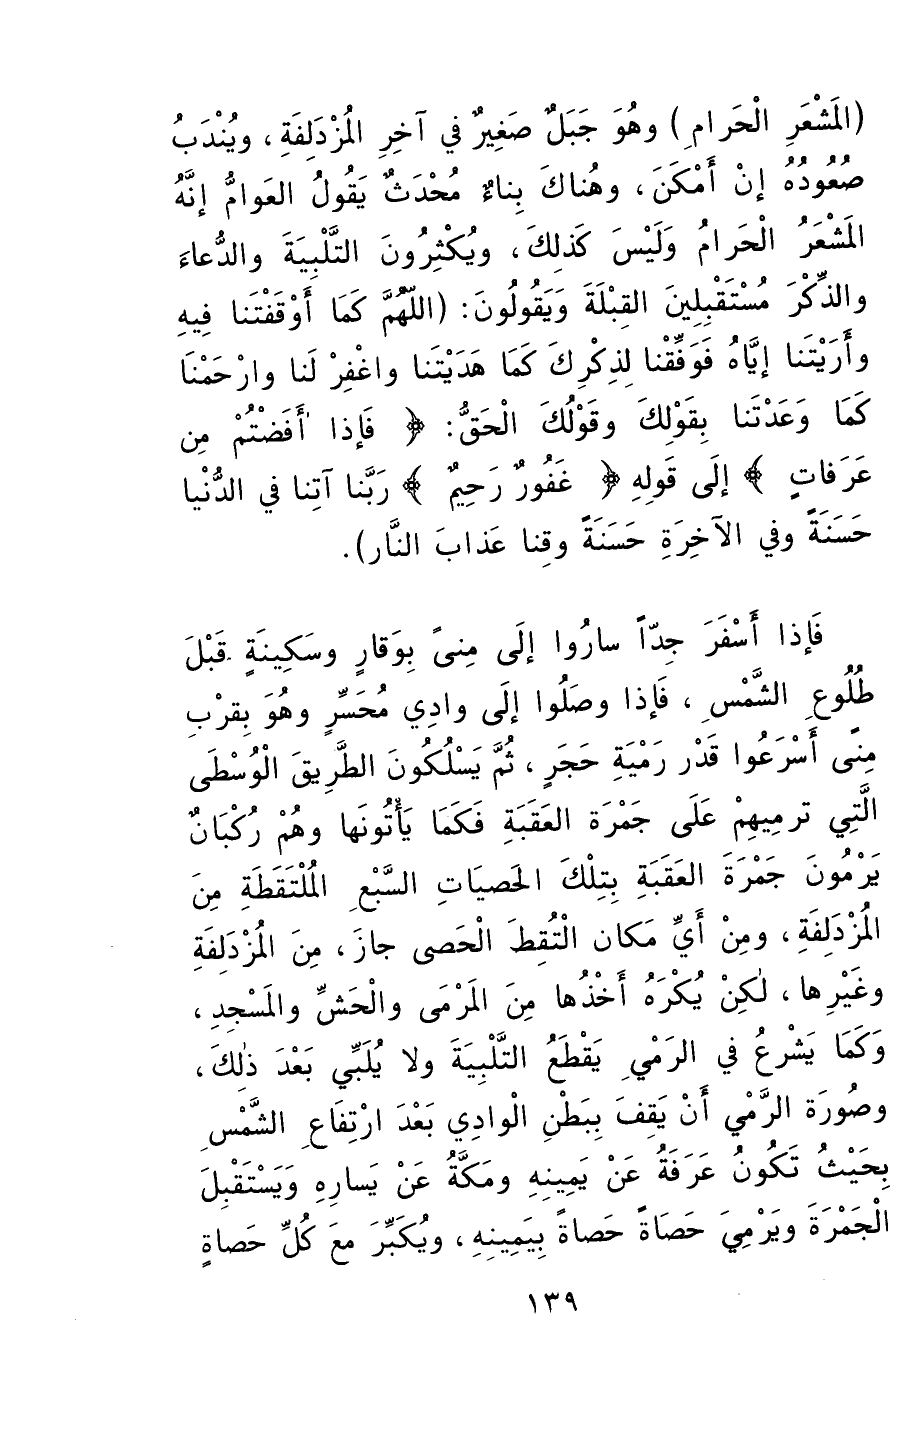 (المَشْعَرِ الْحَرامِ) وهُوَ جَبَلٌ صَغِيرٌ في آخِرِ المُزْدَلِفَةِ، ويُنْدَبُ
صُعُودُهُ إنْ أَمْكَنَ، وهُناكَ بِناءٌ مُحْدَثٌ يَقُولُ العَوامُّ إنَّهُ
المَشْعَرُ الْحَرامُ وَلَيْسَ كَذلِكَ، ويُكْثِرُونَ التَّلْبِيَةَ والدُّعاءَ
والذِّكْرَ مُسْتَقْبِلِينَ القِبْلَةَ وَيَقُولُونَ: (اللّهُمَّ كَمَا أَوْقَفْتَنا فِيهِ
وأَرَيْتَنا إيَّاهُ فَوَفِّقْنا لِذِكْرِكَ كَمَا هَدَيْتَنا واغْفِرْ لَنا وارْحَمْنَا
كَمَا وَعَدْتَنا بِقَوْلِكَ وقَوْلُكَ الْحَقُّ: ﴿ فَإذا أَفَضْتُمْ مِن
عَرَفاتٍ ﴾ إلَى قَولِهِ ﴿ غَفُورٌ رَحِيمٌ ﴾ رَبَّنا آتِنا في الدُّنْيا
حَسَنَةً وفي الآخِرَةِ حَسَنَةً وقِنا عَذابَ النَّار).
فَإذا أَسْفَرَ جِدّاً سارُوا إلَى مِنىً بِوَقارٍ وسَكِينَةٍ قَبْلَ
طُلُوعِ الشَّمْسِ، فَإذا وصَلُوا إلَى وادِي مُحَسِّرٍ وهُوَ بِقرْبِ
مِنًى أَسْرَعُوا قَدْر رَمْيَةِ حَجَرٍ، ثُمَّ يَسْلُكُونَ الطَّرِيقَ الْوُسْطَى
الَّتِي ترمِيهِمْ عَلَى جَمْرَة العَقَبَةِ فَكَمَا يَأْتُونَها وهُمْ رُكْبَانٌ
يَرْمُونَ جَمْرَةَ العَقَبَةِ بِتِلْكَ الحَصيَاتِ السَّبْعِ المُلْتَقَطَةِ مِنَ
المُزْدَلِفَةِ، ومِنْ أَيِّ مَكان الْتُقِطَ الْحَصى جازَ، مِنَ المُزْدَلِفَةِ
وغَيْرِها، لٰكِنْ يُكْرَهُ أَخْذُها مِنَ المَرْمَى والْحَشِّ والمَسْجِدِ،
وَكَمَا يَشْرعُ في الرَمْيِ يَقْطَعُ التَّلْبِيَةَ ولا يُلَبِّي بَعْدَ ذٰلِكَ،
وصُورَة الرَّمْي أَنْ يَقِفَ بِبَطْنِ الْوادِي بَعْدَ ارْتِفَاعِ الشَّمْسِ
بِحَيْثُ تَكُونُ عَرَفَةُ عَنْ يَمِينِهِ ومَكَّةُ عَنْ يَسارِهِ وَيَسْتَقْبِلَ
الْجَمْرَةَ ويَرْمِيَ حَصَاةً حَصاةً بِيَمِينِهِ، ويُكَبِّرَ معَ كُلِّ حَصاةٍ
١٣٩